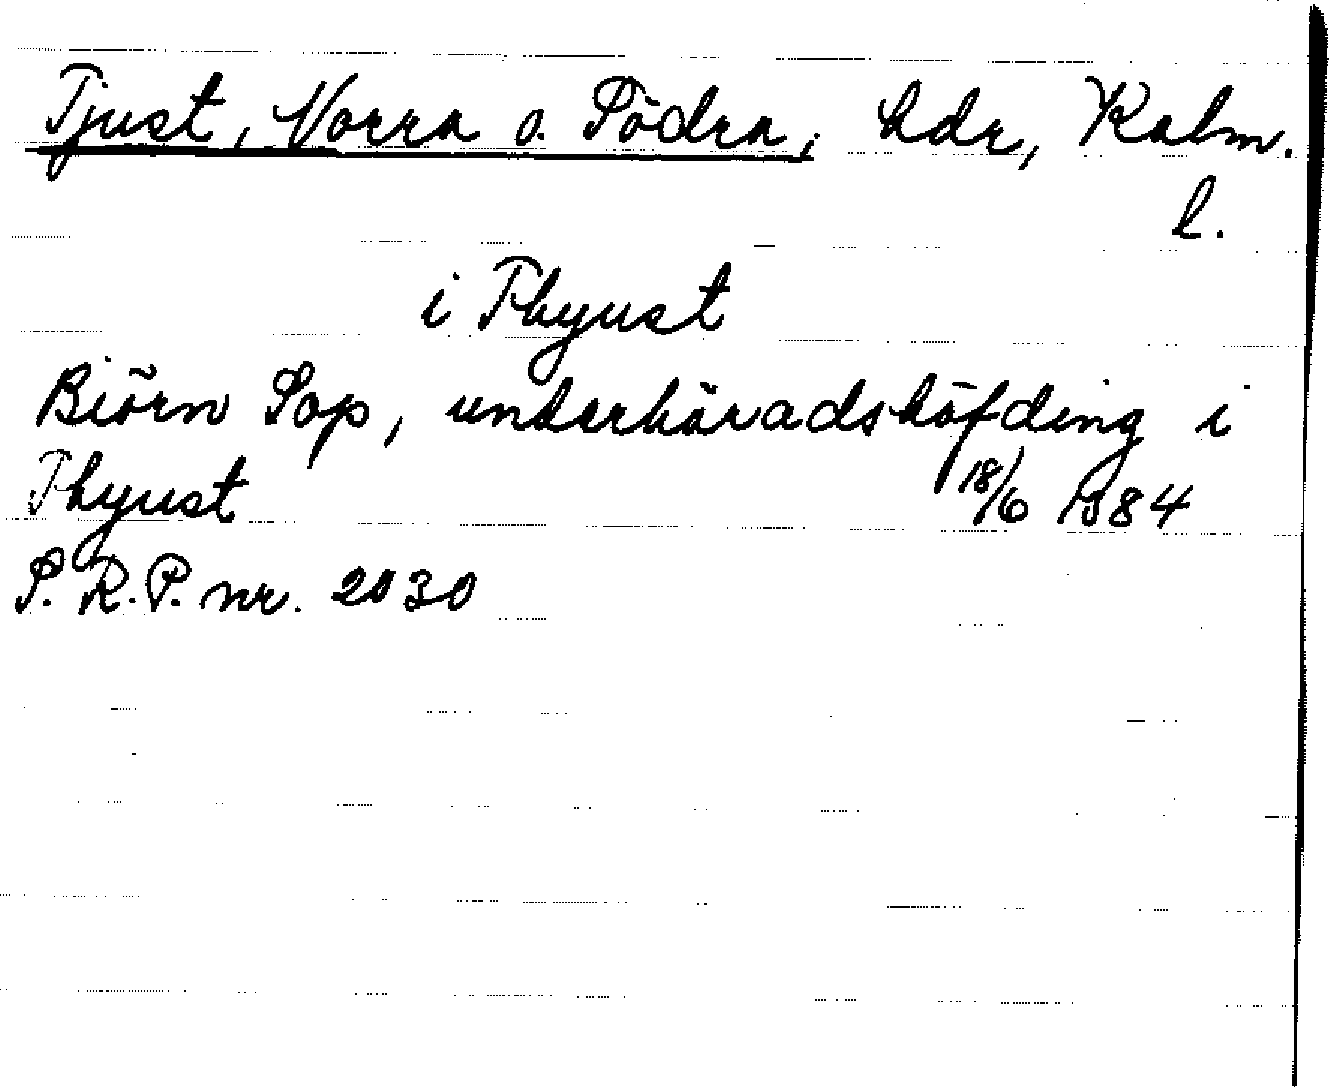 Tjust, Norra o. Södra, hdr, Kalm.
l.
i Thyust
Biörn Sop, underhäradshöfding i
Thyust 18/6 1384
S.R.P. nr. 2030